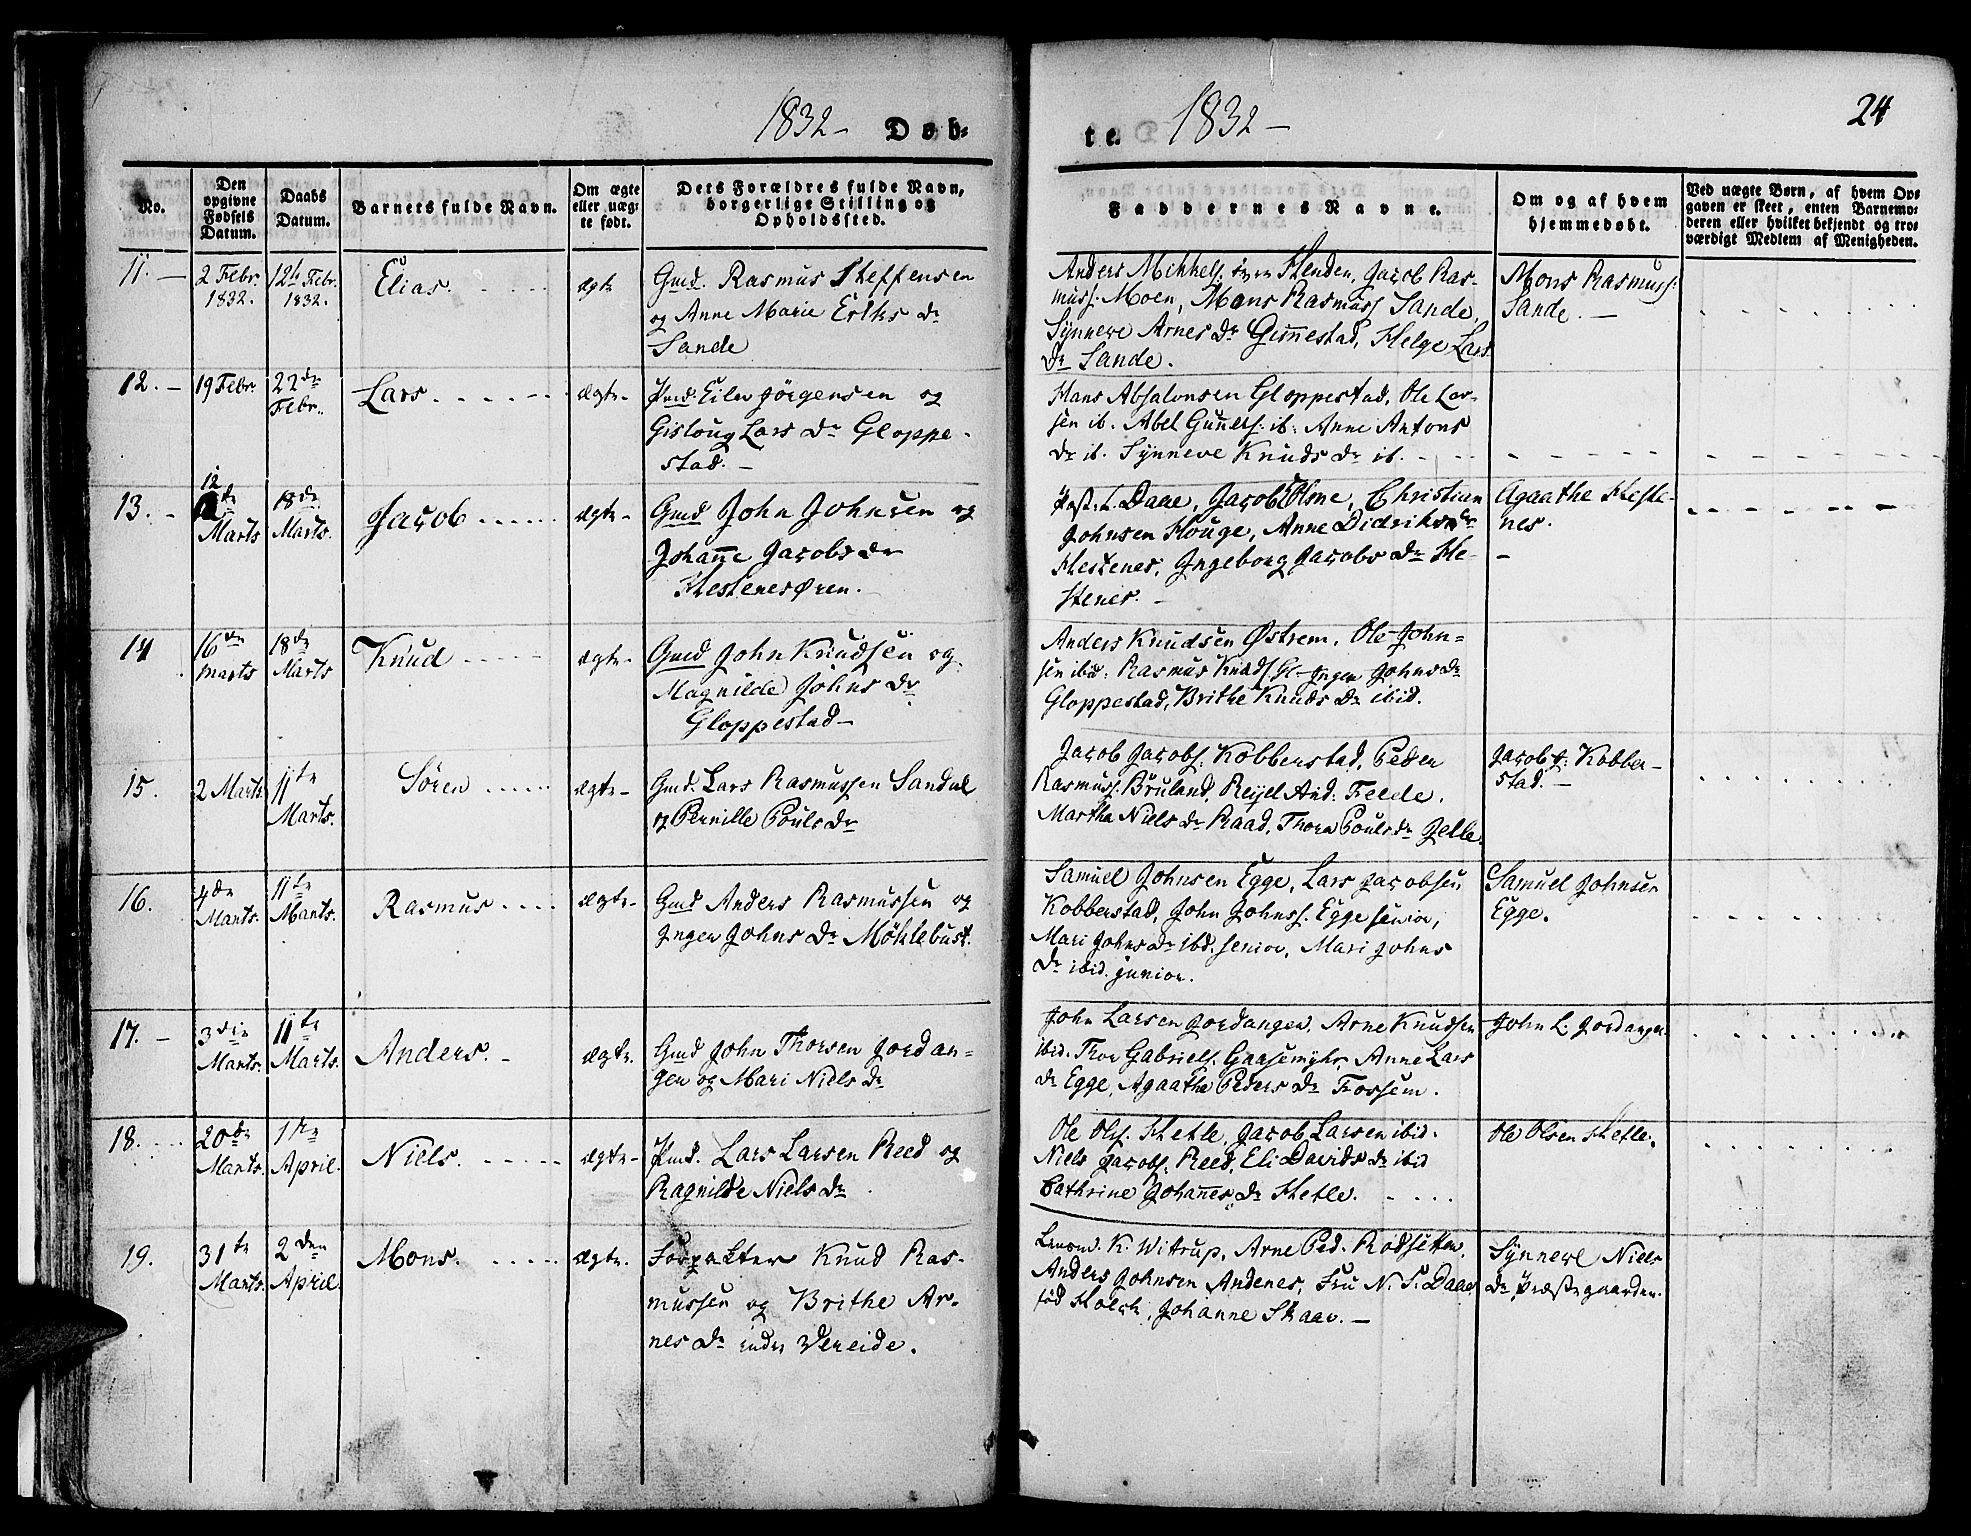 1832 - Døb-
No.
Den opgivne Fødsels Datum.
Daabs Datum.
Barnets fulde Navn.
Om ægte eller uægte født.
Dets Forældres fulde Navn, borgerlige Stilling og Opholdssted.
11. -
2 Febr. 1832.
12te Febr. 1832.
Elias
ægte
Gmd. Rasmus Steffensen
og Anne Marie Eriks Dr
Sande
12. -
19 Febr.
22de Febr.
Lars
ægte-
Pmd. Eiler Jörgensen og
Gisloug Lars Dr Gloppe-
stad. -
13. -
12 de Marts
18de Marts.
Jacob
ægte-
Gmd John Johnsen og
Johanne Jacobs dr
Hestenesøren.
14
16de Marts
18de Marts
Knud
ægte-
Gmd John Knudsen og
Magnilde Johns Dr
Gloppestad-
15.
2 Marts.
11te Marts.
Søren
ægte-
Gmd. Lars Rasmussen Sandal
og Pernille Pouls Dr
16.
4de Marts.
11te Marts.
Rasmus
ægte-
Gmd Anders Rasmussen og
Inger Johns Dr Möklebust.
17. -
3die Marts.
11te Marts.
Anders. -
ægte.
Gmd John Thorsen Jordan-
ger og Mari Niels Dr
18.
20de Marts.
1ste April.
Niels.
ægte-
Pmd. Lars Larsen Reed og
Ragnilde Niels Dr
19.
31te Marts.
2den April.
Mons.
ægte.
Forpakter Knud Ras-
mussen og Brithe Ar-
nes Dr indre Vereide.
te. 1832 -
24
Faddernes Navne.
Om og af hvem hjemmedøbt.
Ved uægte Børn, af hvem Op-
gaven er skeet, enten Barnemo-
deren eller hvilket bekjendt og tro-
værdigt Medlem af Menigheden.
Anders Mikkels. Henden, Jacob Ras-
muss. Moen, Mons Rasmuss Sande,
Synneve Arnes Dr Gimmestad, Helge Lars
Dr Sande.
Mons Rasmuss:
Sande. -
Hans Absalonsen Gloppestad, Ole Lar-
sen ib. Abel Gunners. ib: Anne Antons
Dr ib. Synneve Knuds Dr ib.
Past. L. Daae, Jacob Olsne, Christian
Johnsen Houge, Anne Didriks Dr
Hestenes, Ingeborg Jacobs Dr He-
stenes. -
Agaathe Heste-
nes.
-
Anders Knudsen Østrem, Ole John-
sen ibid. Rasmus Knuds. Gl- Inger Johns Dr
Gloppestad, Brithe Knuds Dr ibid.
Jacob Jacobs. Kobberstad, Peder
Rasmuss. Bruland, Rejel And: Feede.
Martha Niels Dr Raad, Thora Pouls Dr Jelle.
Jacob J: Kobber-
stad. -
Samuel Johnsen Egge, Lars Jacobsen
Kobberstad, John Johnss. Egge senior,
Mari Johns Dr ibd. senior, Mari Johns
Dr ibid. junior.
Samuel Johnsen
Egge.
John Larsen Jordanger, Arne Knudsen
ibid. Thor Gabriels. Gaasemyhr, Anne Lars
Dr Egge, Agaathe Peders Dr Fossem.
John L. Jordanger
Ole Ols. Hetle, Jacob Larsen ibid.
Niels Jacobs. Reed, Eli Davids Dr ibid
Cathrine Johannes Dr Hetle.
Ole Olsen Hetle.
Lensmd. K. Witrup, Arne Ped. Rodseten,
Anders Johnsen Andenes, Fru N. S. Daae
fød Holck, Johanne Skaar. -
Synneve Niels
Dr Præstegaarden.